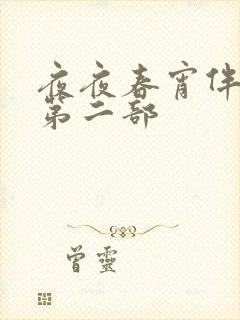 夜夜春宵伴
第二部
曾靈